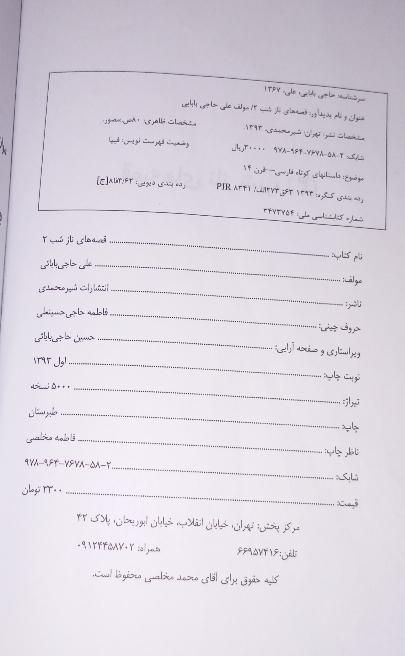 سرشناسه: حاجی بابایی، علی، ۱۳۶۷
عنوان و نام پدیدآور: قصه‌های ناز شب ۲/ مولف علی حاجی بابایی
مشخصات نشر: تهران: شیرمحمدی، ۱۳۹۳. مشخصات ظاهری: ۸۰ص.مصور.
شابک: ۲-۵۸-۷۶۷۸-۹۶۴-۹۷۸ ۳۰۰۰۰ریال وضعیت فهرست نویسی: فیپا
موضوع: داستانهای کوتاه فارسی--قرن ۱۴
رده بندی کنگره: ۱۳۹۳ PIR ۸۳۴۱ رده بندی دیویی:
شماره کتابشناسی ملی: ۳۴۷۳۷۵۴
نام کتاب: قصه‌های ناز شب ۲
مولف: علی حاجی‌بابائی
ناشر: انتشارات شیرمحمدی
حروف چینی: فاطمه حاجی‌حسینعلی
ویراستاری و صفحه آرایی: حسین حاجی‌بابائی
نوبت چاپ: اول ۱۳۹۳
تیراژ: ۵۰۰۰ نسخه
چاپ: طبرستان
ناظر چاپ: فاطمه مخلصی
شابک: ۲-۵۸-۷۶۷۸-۹۶۴-۹۷۸
قیمت: ۳۳۰۰ تومان
مرکز پخش: تهران، خیابان انقلاب، خیابان ابوریحان، پلاک ۴۲
تلفن:۶۶۹۵۷۴۱۶ همراه: ۰۹۱۲۴۴۵۸۷۰۲
کلیه حقوق برای آقای محمد مخلصی محفوظ است.